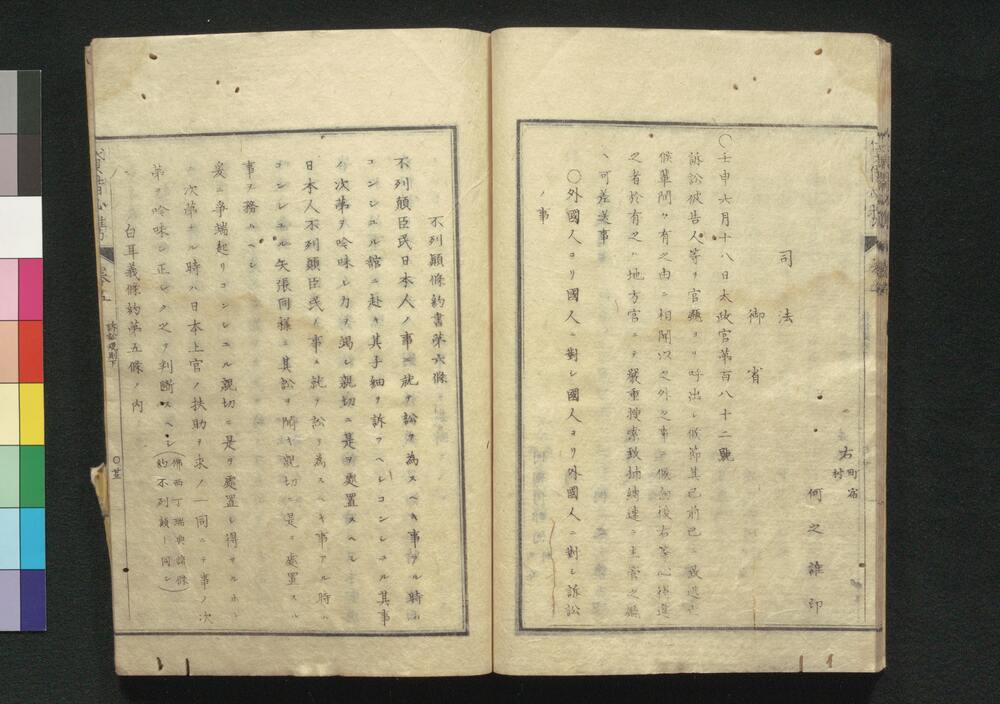 右 町 宿
村
何之誰印
司法
御省
〇壬申六月十八日太政官第百八十二號
訴訟被告人等ヲ官廳ヨリ呼出シ候節其已前已ニ
候輩間々有之由ニ相聞以之外之事ニ候向後右等心得違
之者於有之ハ地方官ニテ嚴重捜索致捕縛速ニ主管之廳
ヘ可差送事
〇外國人ヨリ國人ニ對シ國人ヨリ外國人ニ對シ訴訟
ノ事
不列顛條約書第六條
不列顛臣民日本人ノ事ニ就テ訟ヲ為スヘキ事アル時ハ
コンシユル館ニ赴キ其手細ヲ訴フヘシコンシユル其事
ノ次第ヲ吟味シ力ヲ竭シ親切ニ是ヲ處置スヘシ
日本人不列顛臣民ノ事ニ就テ訟ヲ為スヘキ事アル時ハ
コンシユル矢張同様ニ其訟ヲ聞キ親切ニ是ヲ處置スル
事ヲ務ヘシ
爰ニ爭端起リコンシユル親切ニ是ヲ處置シ得サルホ
ノ次第ナル時ハ日本上官ノ扶助ヲ求ノ一同ニテ事ノ次
第ヲ吟味シ正シク之ヲ判斷スヘシ(佛西丁瑞典諸條約不列顛ト同シ)
白耳義條約第五條ノ内
卷五
訴訟規則下
〇廿